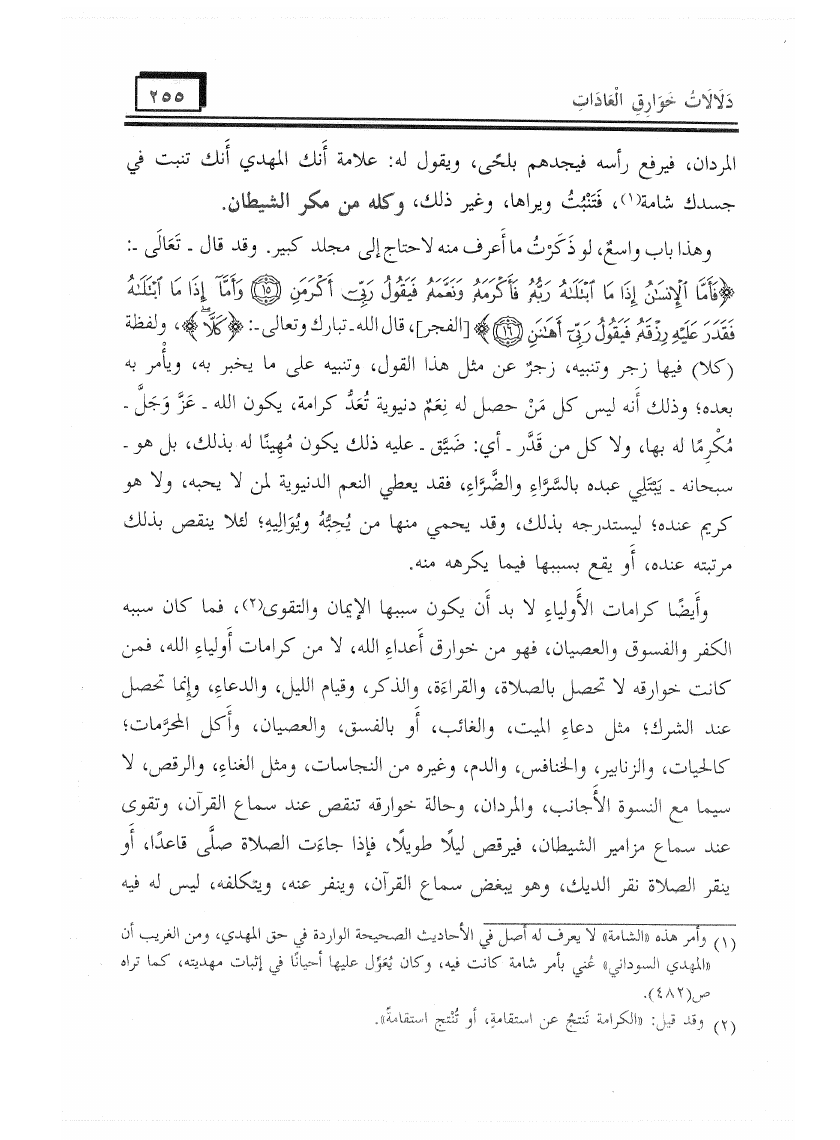 دَلَالَاتُ خَوَارِقِ الْعَادَاتِ
٢٥٥
المردان، فيرفع رأسه فيجدهم بلحًى، ويقول له: علامة أَنك المهدي أَنك تنبت في
جسدك شامة(١)، فَتَنْبُتُ ويراها، وغير ذلك، وكله من مكر الشيطان.
وهذا باب واسعٌ، لو ذَكَرْتُ ما أَعرف منه لاحتاج إلى مجلد كبير. وقد قال ـ تَعَالَى ـ:
﴿فَأَمَّا ٱلْإِنسَٰنُ إِذَا مَا ٱبْتَلَىٰهُ رَبُّهُۥ فَأَكْرَمَهُۥ وَنَعَّمَهُۥ فَيَقُولُ رَبِّىٓ أَكْرَمَنِ ۝١٥ وَأَمَّآ إِذَا مَا ٱبْتَلَىٰهُ
فَقَدَرَ عَلَيْهِ رِزْقَهُۥ فَيَقُولُ رَبِّىٓ أَهَٰنَنِ ۝١٦﴾ [الفجر]، قال الله ـ تبارك وتعالى ـ: ﴿كَلَّاۖ﴾، ولفظة
(كلا) فيها زجر وتنبيه، زجرٌ عن مثل هذا القول، وتنبيه على ما يخبر به، ويأْمر به
بعده؛ وذلك أَنه ليس كل مَنْ حصل له نِعَمٌ دنيوية تُعَدُّ كرامة، يكون الله ـ عَزَّ وَجَلَّ ـ
مُكْرِمًا له بها، ولا كل من قَدَّر ـ أي: ضَيَّق ـ عليه ذلك يكون مُهِينًا له بذلك، بل هو ـ
سبحانه ـ يَبْتَلِي عبده بالسَّرَّاءِ والضَّرَّاءِ، فقد يعطي النعم الدنيوية لمن لا يحبه، ولا هو
كريم عنده؛ ليستدرجه بذلك، وقد يحمي منها من يُحِبُّهُ ويُوَالِيهِ؛ لئلا ينقص بذلك
مرتبته عنده، أَو يقع بسببها فيما يكرهه منه.
وأَيضًا كرامات الأَولياءِ لا بد أَن يكون سببها الإيمان والتقوى(٢)، فما كان سببه
الكفر والفسوق والعصيان، فهو من خوارق أَعداءِ الله، لا من كرامات أَولياءِ الله، فمن
كانت خوارقه لا تحصل بالصلاة، والقراءَة، والذكر، وقيام الليل، والدعاءِ، وإنما تحصل
عند الشرك؛ مثل دعاءِ الميت، والغائب، أَو بالفسق، والعصيان، وأَكل المحرَّمات؛
كالحيات، والزنابير، والخنافس، والدم، وغيره من النجاسات، ومثل الغناءِ، والرقص، لا
سيما مع النسوة الأَجانب، والمردان، وحالة خوارقه تنقص عند سماع القرآن، وتقوى
عند سماع مزامير الشيطان، فيرقص ليلًا طويلًا، فإذا جاءَت الصلاة صلَّى قاعدًا، أَو
ينقر الصلاة نقر الديك، وهو يبغض سماع القرآن، وينفر عنه، ويتكلفه، ليس له فيه
(١) وأمر هذه «الشامة» لا يعرف له أصل في الأحاديث الصحيحة الواردة في حق المهدي، ومن الغريب أن
«المهدي السوداني» عُني بأمر شامة كانت فيه، وكان يُعَوِّل عليها أحيانًا في إثبات مهديته، كما تراه
ص(٤٨٢).
(٢) وقد قيل: «الكرامة تَنتجُ عن استقامةٍ، أو تُنْتج استقامةً».